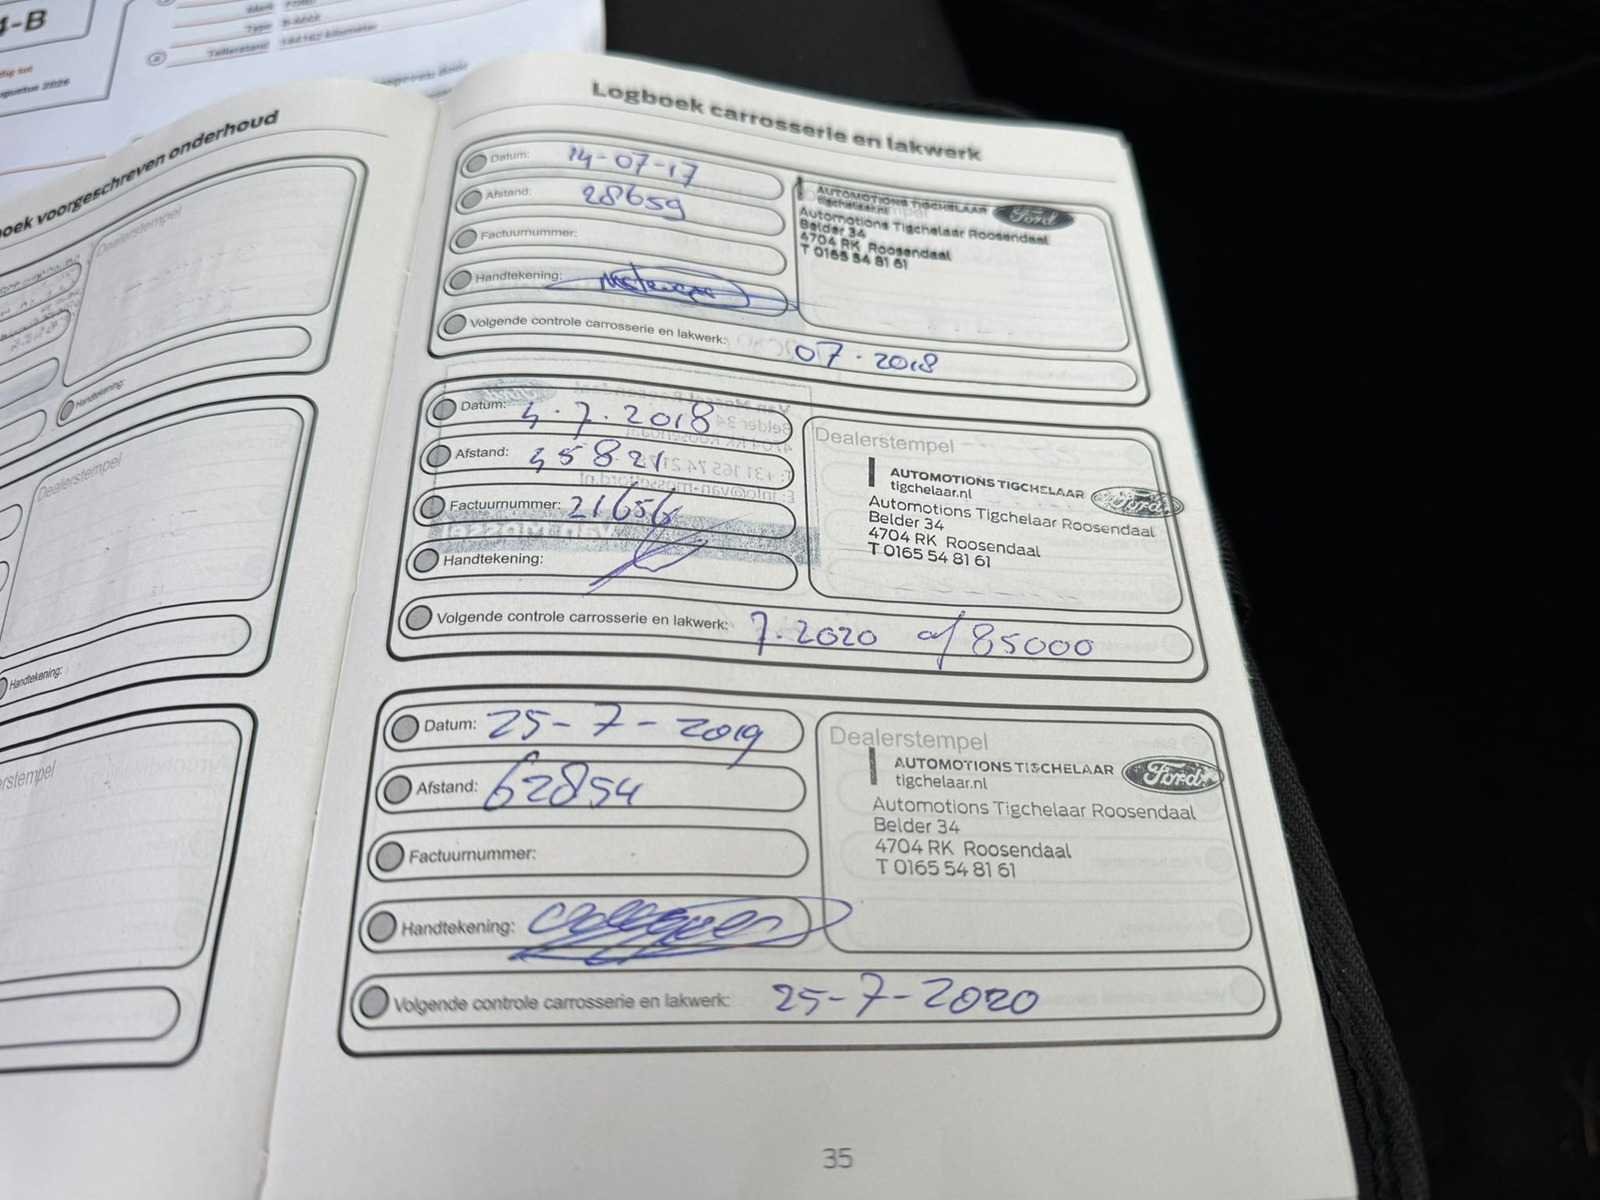 4-B
Type B-MAX
Tellerstand
augustus 2026
boek voorgeschreven onderhoud
Dealerstempel
Handtekening:
Dealerstempel
Handtekening:
erstempel
Logboek carrosserie en lakwerk
Datum: 14-07-17
Afstand: 28659
Factuurnummer:
Handtekening:
Volgende controle carrosserie en lakwerk: 07-2018
AUTOMOTIONS TIGCHELAAR Ford
tigchelaar.nl
Automotions Tigchelaar Roosendaal
Belder 34
4704 RK Roosendaal
T 0165 54 81 61
Datum: 4.7.2018
Afstand: 45821
Factuurnummer: 21656
Handtekening:
Volgende controle carrosserie en lakwerk: 7.2020 of 85000
Dealerstempel
AUTOMOTIONS TIGCHELAAR Ford
tigchelaar.nl
Automotions Tigchelaar Roosendaal
Belder 34
4704 RK Roosendaal
T 0165 54 81 61
Datum: 25-7-2019
Afstand: 62854
Factuurnummer:
Handtekening:
Volgende controle carrosserie en lakwerk: 25-7-2020
Dealerstempel
AUTOMOTIONS TIGCHELAAR Ford
tigchelaar.nl
Automotions Tigchelaar Roosendaal
Belder 34
4704 RK Roosendaal
T 0165 54 81 61
35